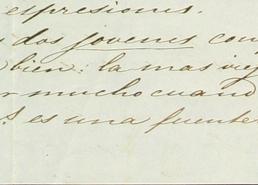 espresiones.
dos jovenes con
bien: la mas viej
mucho cuand
es una fuente